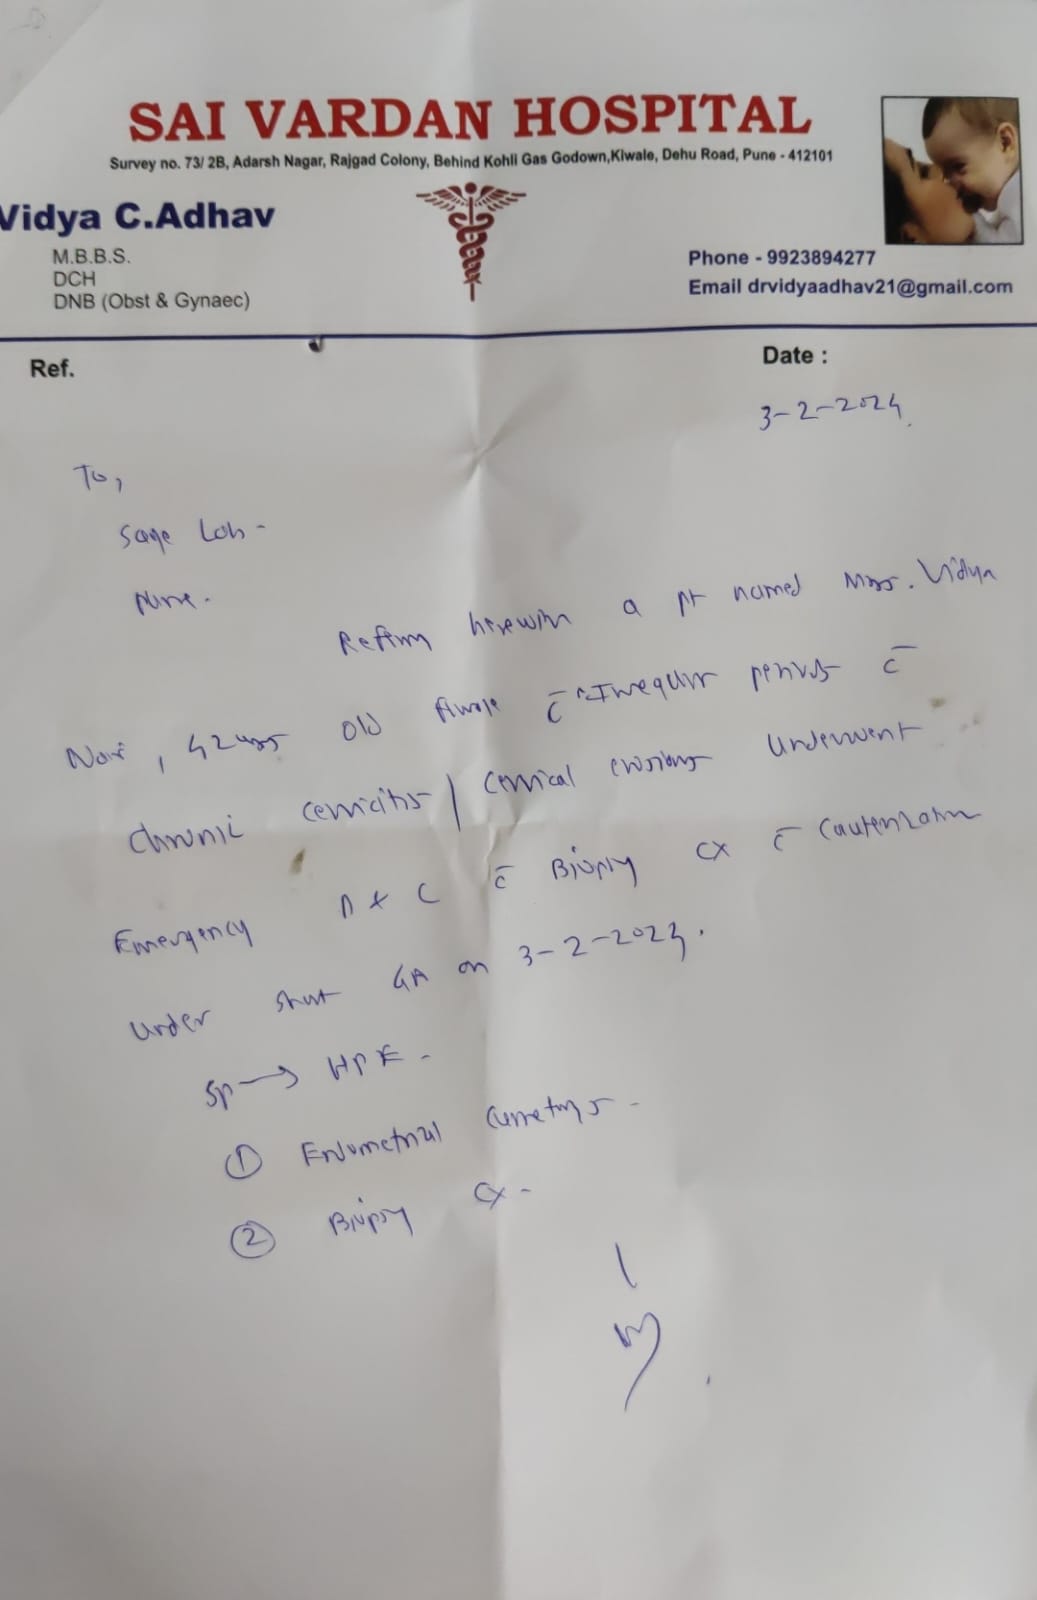 SAI VARDAN HOSPITAL
Survey no. 73/ 2B, Adarsh Nagar, Rajgad Colony, Behind Kohli Gas Godown,Kiwale, Dehu Road, Pune - 412101
Vidya C.Adhav
M.B.B.S.
DCH
DNB (Obst & Gynaec)
Phone - 9923894277
Email drvidyaadhav21@gmail.com
Ref.
Date :
3-2-2024
To,
Sage Lab -
Pune.
herewith a pt named Mrs. Vidya
, 42 yrs old female c̄ Irregular periods c̄
chronic cervicitis / cervical erosions underwent
Emergency D & C c̄ Biopsy cx c̄ cauterization
under short GA on 3-2-2024.
Sp → HPE -
① Endometrial currettings -
② Biopsy cx -